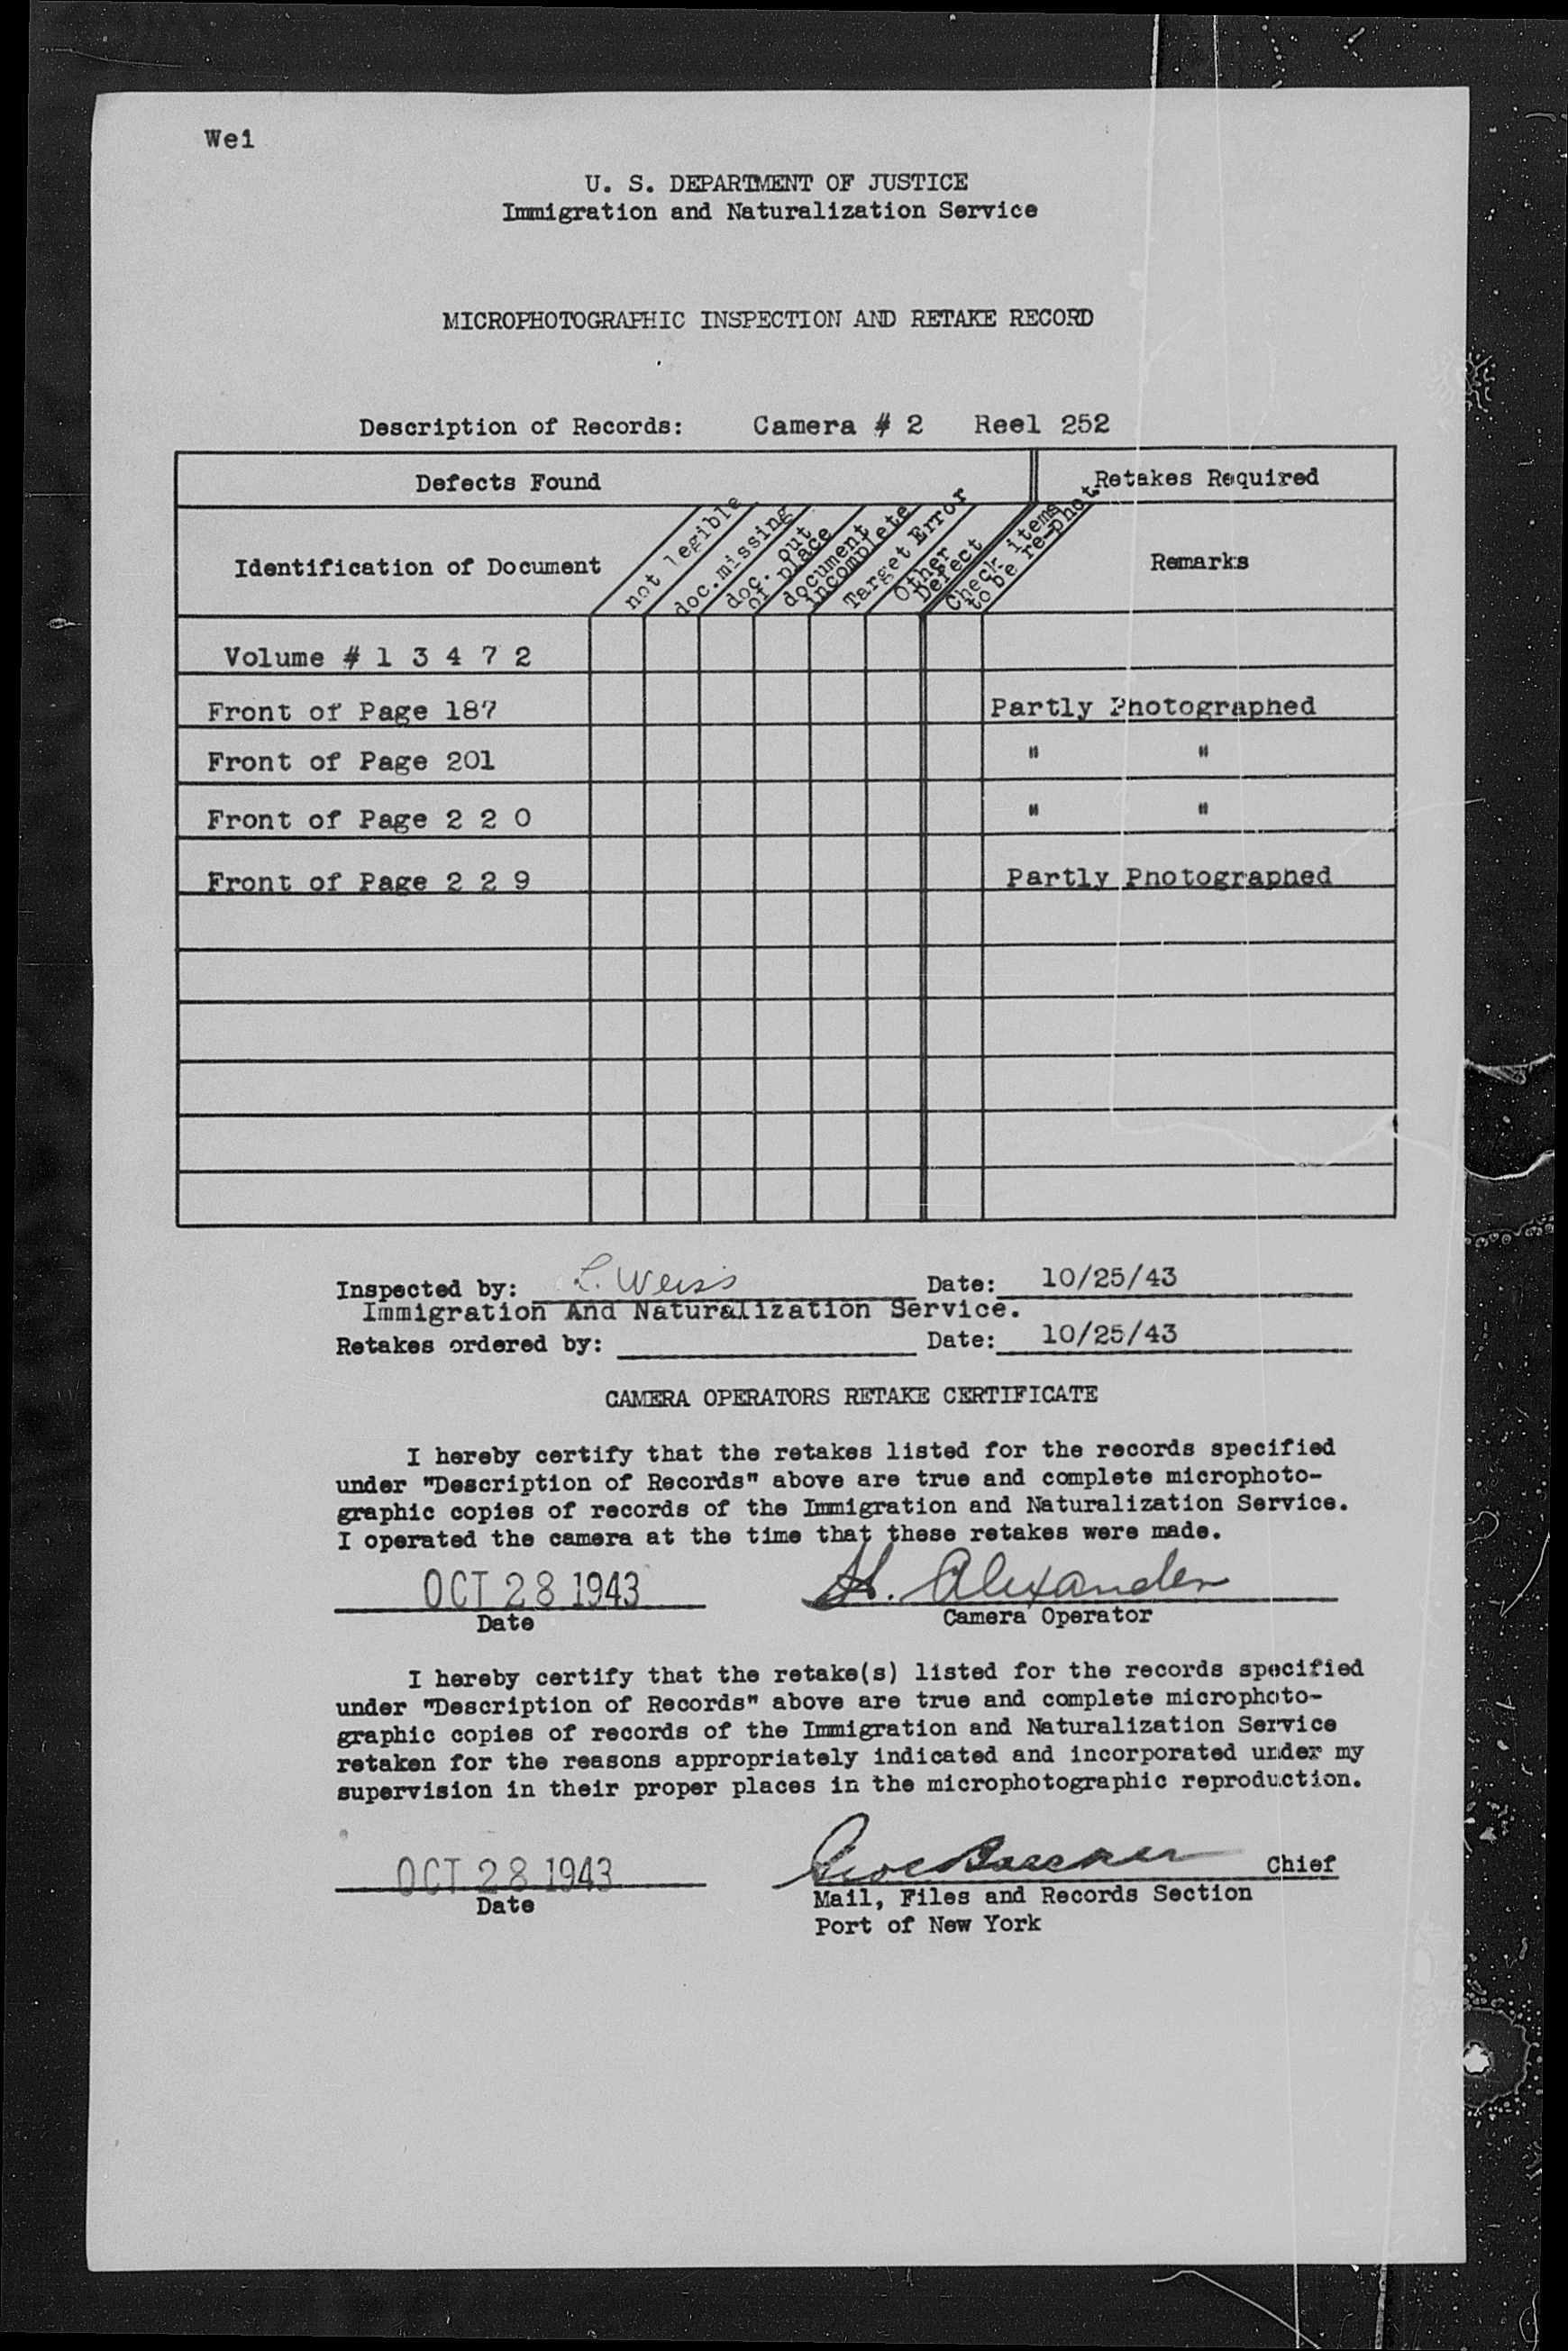 Wei
U. S. DEPARTMENT OF JUSTICE
Immigration and Naturalization Service
MICROPHOTOGRAPHIC INSPECTION AND RETAKE RECORD
Description of Records: Camera # 2 Reel 252
Defects Found
Retakes Required
Identification of Document
not legible
doc.missing
doc. out
of place
document
incomplete
Target Error
Other
Defect
Check items
to be re-phot
Remarks
Volume # 1 3 4 7 2
Front of Page 187 Partly Photographed
Front of Page 201 " "
Front of Page 2 2 0 " "
Front of Page 2 2 9 Partly Photographed
Inspected by: L. Weiss Date: 10/25/43
Immigration And Naturalization Service.
Retakes ordered by: Date: 10/25/43
CAMERA OPERATORS RETAKE CERTIFICATE
I hereby certify that the retakes listed for the records specified
under "Description of Records" above are true and complete microphoto-
graphic copies of records of the Immigration and Naturalization Service.
I operated the camera at the time that these retakes were made.
OCT 28 1943 H. Alexander
Date Camera Operator
I hereby certify that the retake(s) listed for the records specified
under "Description of Records" above are true and complete microphoto-
graphic copies of records of the Immigration and Naturalization Service
retaken for the reasons appropriately indicated and incorporated under my
supervision in their proper places in the microphotographic reproduction.
OCT 28 1943 Chief
Date Mail, Files and Records Section
Port of New York